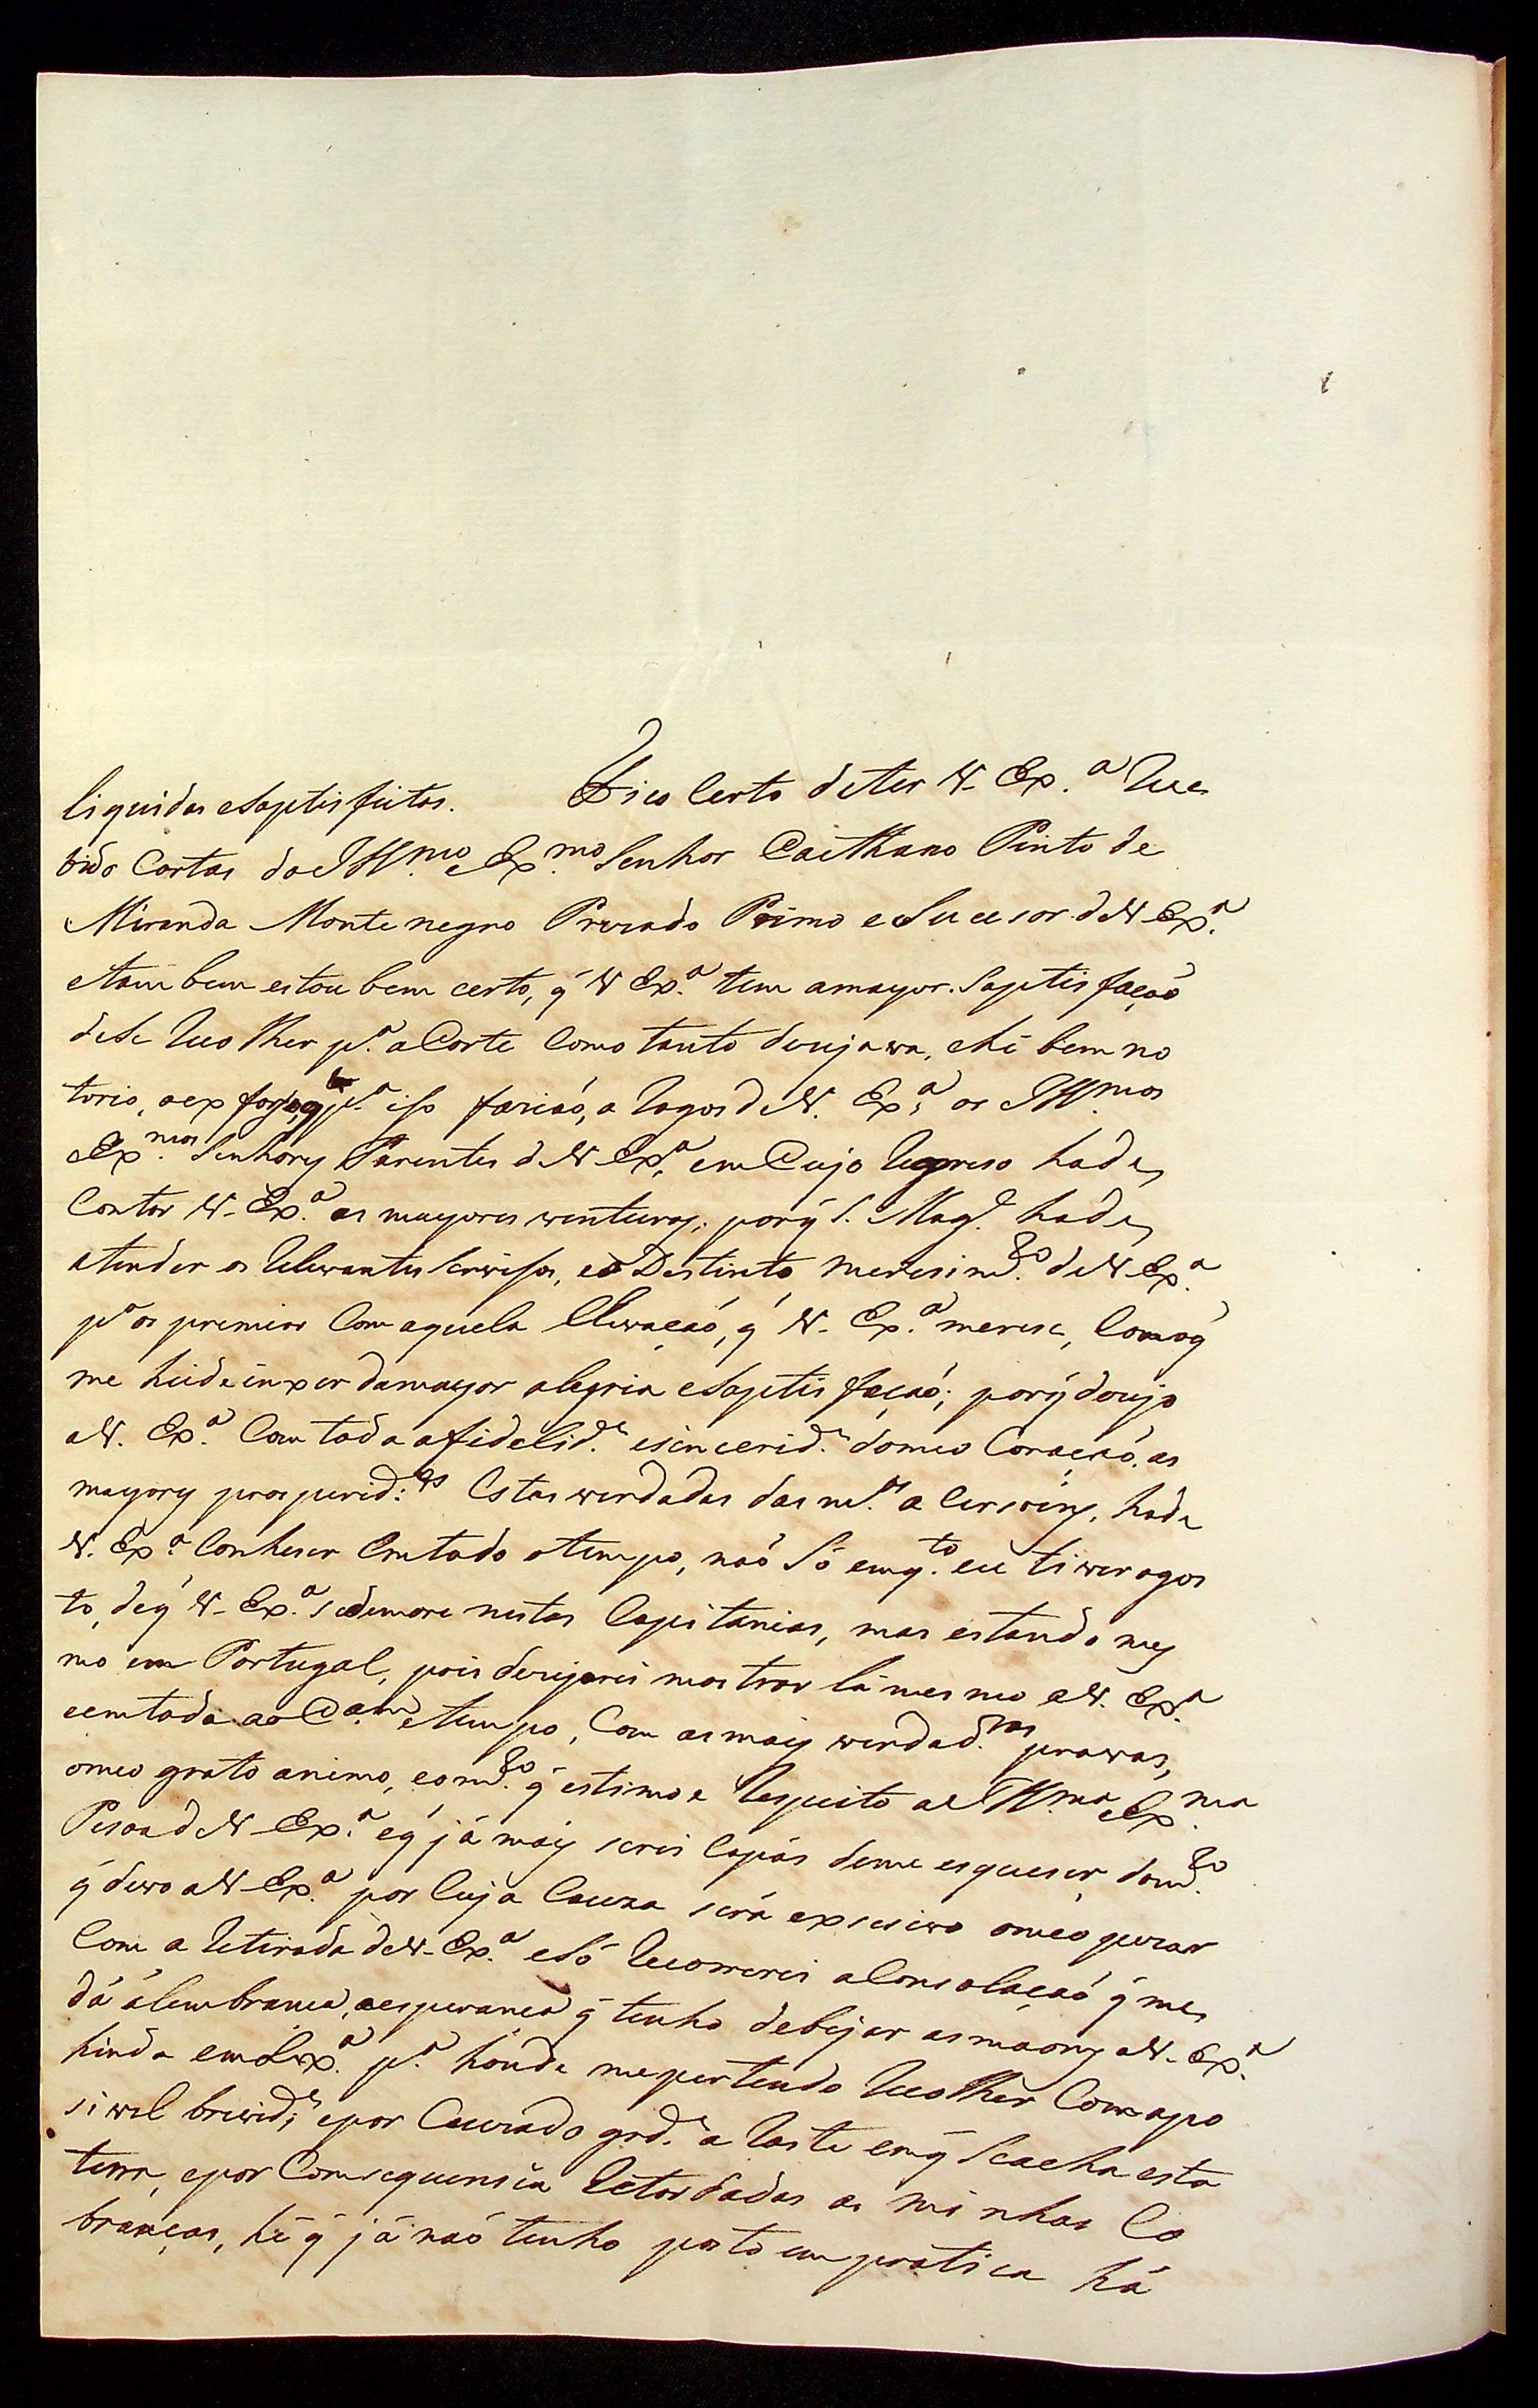 liquidas eSaptisfeitas. Fico Certo deter V. Ex.ª Rece
bido Cartas do Ill.mo e Ex.mo Senhor Caethano Pinto de
Miranda Montenegro Prezado Primo eSucesor deV Ex.ª
etambem estou bem certo, q̃ V Ex.ª tem amayor Saptisfaçaõ
deSe Recolher p.ª aCorte Como tanto dezejava, ehé bem no
torio, oexforso, q̃ p.ª iso fariaó, a Rogos deV. Ex.ª os Ill.mos
e Ex.mos Senhorez Parentes deV Ex.ª, emCujo Regreso hade
Contar V. Ex.ª as mayores venturas; porq̃ S. Mag.e hade
atender os Relevantes Servisos, eo Destinto meresim.to deV Ex.ª
p.ª os premiar Com aquela Elevaçaó, q̃ V. Ex.ª merese, Comoq̃
me heide inxer damayor alegria eSaptisfaçaó; porq̃ dezejo
aV. Ex.ª Com toda afidelid.e esincerid.e domeo Coraçaó, as
mayorez prosperid.es Estas verdadas das m.as a Sersoins, hade
V. Ex.ª Conheser emtodo otempo, naó Só emq.to eu tiver ogos
to, deq̃ V. Ex.ª sedemore nestas Capitanias, mas estando mez
mo em Portugal, pois dezejarei mostrar lá mesmo aV. Ex.ª
eemtodo ao etempo, Com asmaiz verdad.ras provas,
omeo grato animo, eom.to q̃ estimo e Respeito a Ill.ma e Ex.ma
Pesoa deV Ex.ª eq̃ já maiz serei Capás deme esqueser, dom.to
q̃ devo aV Ex.ª por Cuja Cauza será exsesivo omeo pezar
Com a Retirada deV. Ex.ª eSó Recorrerei aConsolaçaó q̃ me
dá álembranca, aesperanca q̃ tenho debejar asmaonz aV. Ex.ª
hinda emLix.ª p.ª honde mepertendo Recolher Comapo
sivel brevid.e; epor Cauzado grd.e a Raste emq̃ Seacha esta
terra, epor Comsequensia Retardadas as minhas Co
branças, hé q̃ já naó tenho posto empratica há